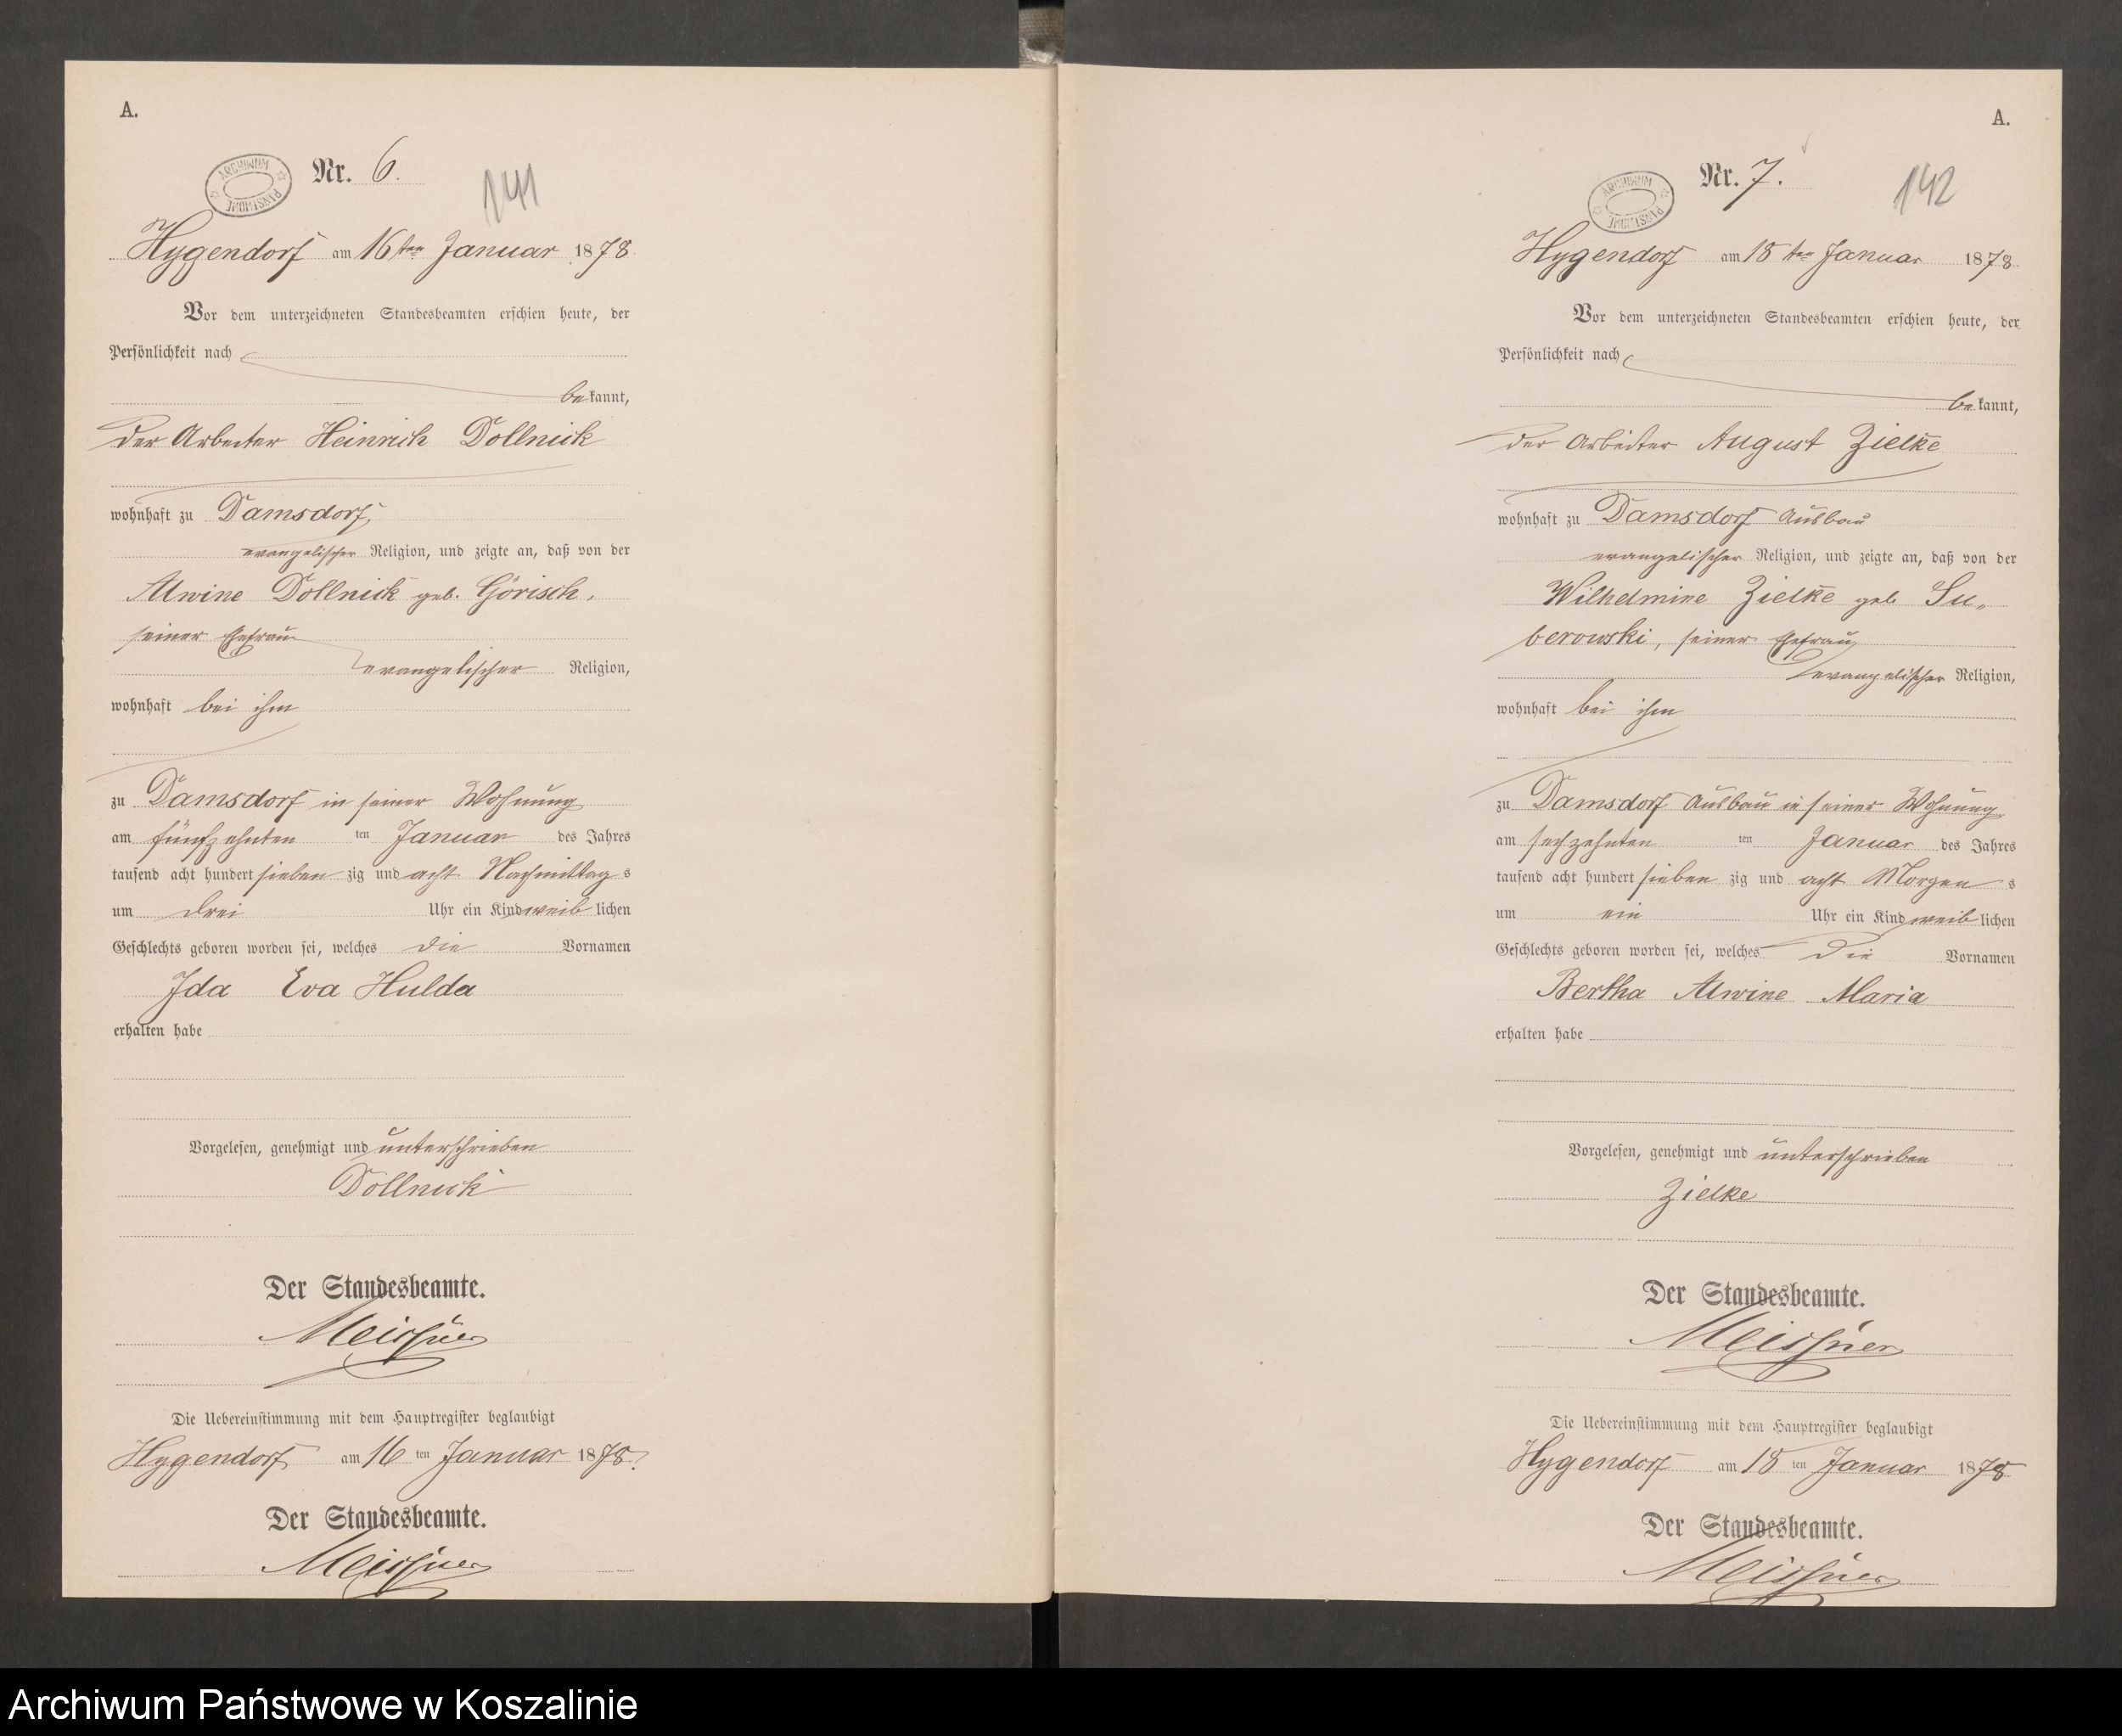 A.
ARCHIWUM PAŃSTWOWE
Nr. 6.
141
Hygendorf am 16ten Januar 1878.
Vor dem unterzeichneten Standesbeamten erschien heute, der
Persönlichkeit nach
bekannt,
der Arbeiter Heinrich Dollnick
wohnhaft zu Damsdorf,
evangelischer Religion, und zeigte an, daß von der
Alwine Dollnick geb. Görisch,
seiner Ehefrau
evangelischer Religion,
wohnhaft bei ihm
zu Damsdorf in seiner Wohnung
am fünfzehnten ten Januar des Jahres
tausend acht hundert siebenzig und acht Nachmittags
um drei Uhr ein Kind weiblichen
Geschlechts geboren worden sei, welches die Vornamen
Ida Eva Hulda
erhalten habe
Vorgelesen, genehmigt und unterschrieben
Dollnick
Der Standesbeamte.
Meissner
Die Uebereinstimmung mit dem Hauptregister beglaubigt
Hygendorf am 16ten Januar 1878.
Der Standesbeamte.
Meissner
A.
ARCHIWUM PAŃSTWOWE
Nr. 7.
142
Hygendorf am 18ten Januar 1878
Vor dem unterzeichneten Standesbeamten erschien heute, der
Persönlichkeit nach
bekannt,
der Arbeiter August Zielke
wohnhaft zu Damsdorf Ausbau
evangelischer Religion, und zeigte an, daß von der
Wilhelmine Zielke geb Su-
berowski, seiner Ehefrau
evangelischer Religion,
wohnhaft bei ihm
zu Damsdorf Ausbau in seiner Wohnung
am sechzehnten ten Januar des Jahres
tausend acht hundert siebenzig und acht Morgens
um ein Uhr ein Kind weiblichen
Geschlechts geboren worden sei, welches die Vornamen
Bertha Alwine Maria
erhalten habe
Vorgelesen, genehmigt und unterschrieben
Zielke
Der Standesbeamte.
Meissner
Die Uebereinstimmung mit dem Hauptregister beglaubigt
Hygendorf am 18ten Januar 1878
Der Standesbeamte.
Meissner
Archiwum Państwowe w Koszalinie